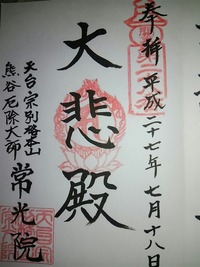 奉拝 平成二十七年七月十八日
大悲殿
天台宗別格本山
熊谷厄除大師
常光院